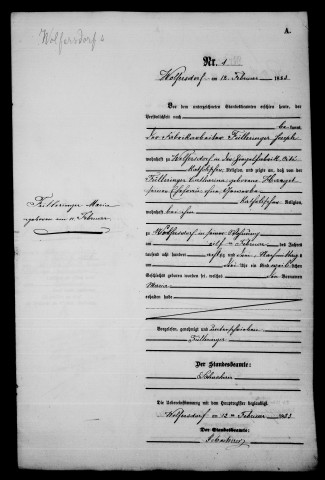 Wolfersdorf
A.
Nr. 1
Wolfersdorf am 12 Februar 1883
Vor dem unterzeichneten Standesbeamten erschien heute, der
Persönlichkeit nach
be kannt,
der Fabrikarbeiter Fülleringer Joseph
wohnhaft zu Wolfersdorf in der Ziegelfabrik
katholischer Religion, und zeigte an, daß von der
Fülleringer Catharina geborene
seiner Ehefrau ohne Gewerbe
katholischer Religion,
wohnhaft bei ihm
Fülleringer Maria
geboren am 11 Februar.
zu Wolfersdorf in seiner Wohnung
am elf ten Februar des Jahres
tausend acht hundert achtzig und drei Nachmittags
um drei Uhr ein Kind weiblichen
Geschlechts geboren worden sei, welches den Vornamen
Maria
erhalten habe
Vorgelesen, genehmigt und unterschrieben
Fülleringer
Der Standesbeamte:
Die Uebereinstimmung mit dem Hauptregister beglaubigt
Wolfersdorf am 12 ten Februar 1883
Der Standesbeamte: